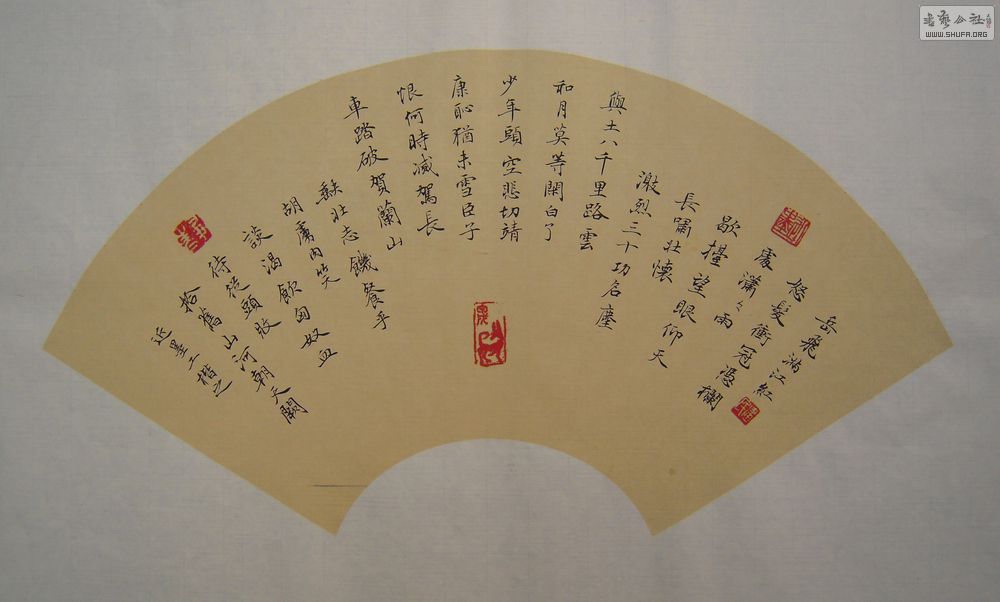 岳飛滿江紅
怒髮衝冠憑欄
處瀟々雨
歇擡望眼仰天
長嘯壯懷
激烈三十功名塵
與土八千里路雲
和月莫等閑白了
少年頭空悲切靖
康恥猶未雪臣子
恨何時滅駕長
車踏破賀蘭山
缺壯志饑餐乎
胡虜肉笑
談渴飲匈奴血
待從頭收
拾舊山河朝天闕
近墨工楷之
書藝公社
WWW.SHUFA.ORG